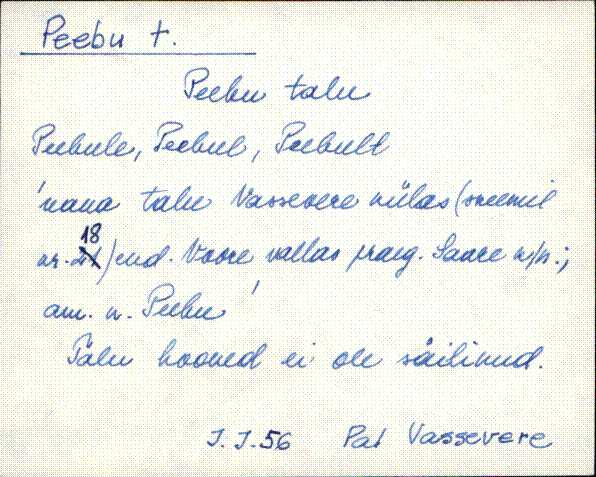 Peebu t.
Peebu talu
Peebule, Peebul, Peebult
'vana talu Vassevere külas (skeemil
nr. 18) end. Voore vallas praeg. Saare k/n.;
am. n. Peebu'
Talu hooned ei ole säilinud.
J. J. 56 Pal Vassevere